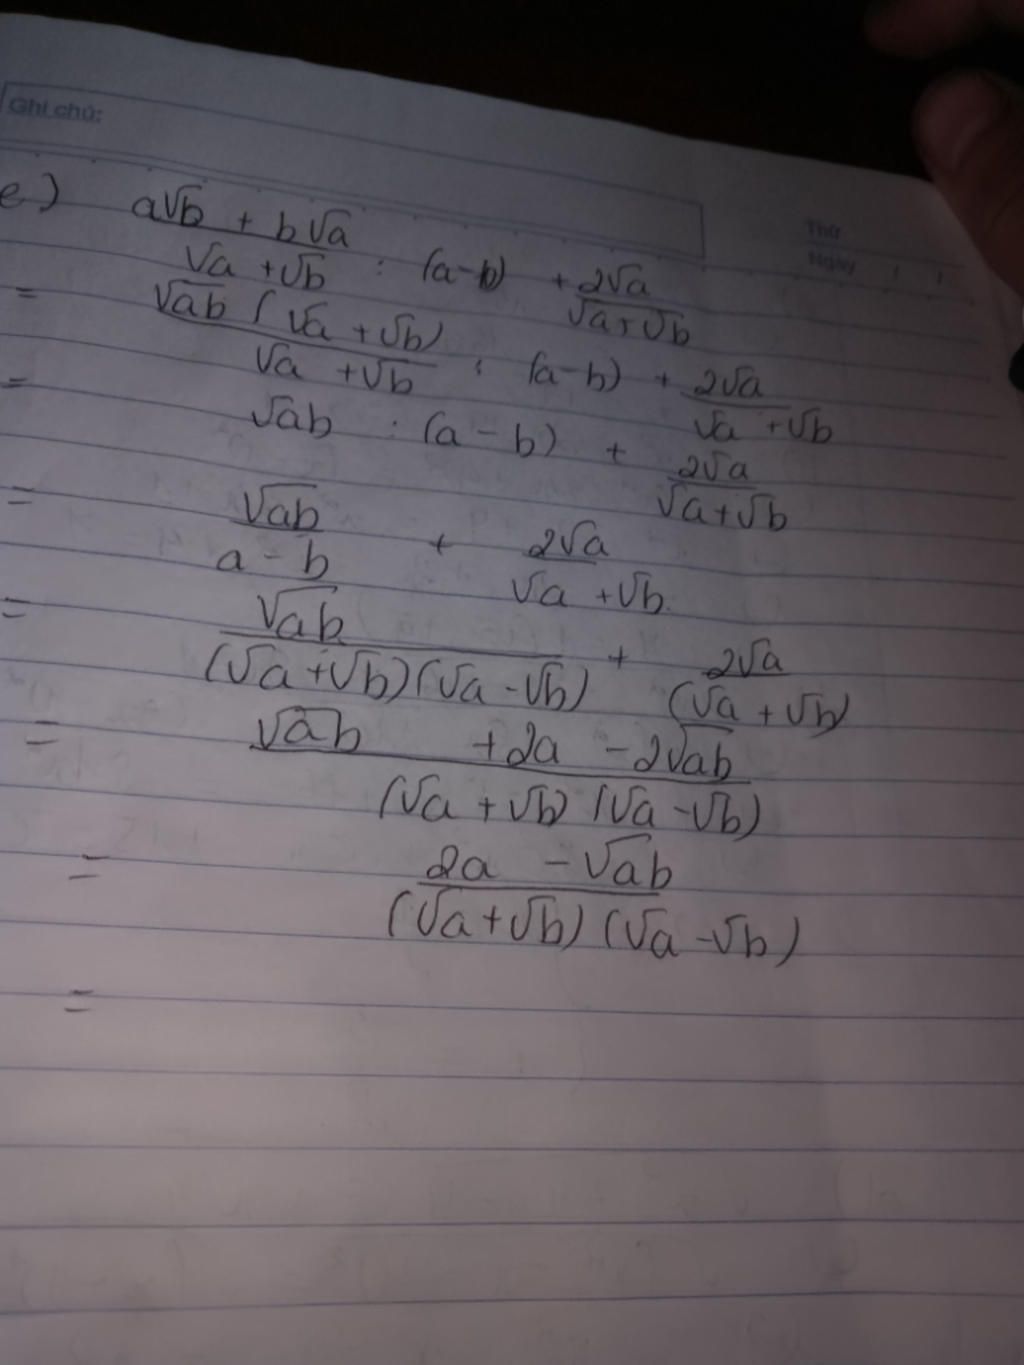 Ghi chú:
Thứ
Ngày / /
e) (a√b + b√a)/(√a + √b) : (a-b) + 2√a/(√a+√b)
= √ab (√a + √b)/(√a + √b) : (a-b) + 2√a/(√a + √b)
= √ab : (a - b) + 2√a/(√a+√b)
= √ab/(a - b) + 2√a/(√a + √b)
= √ab/((√a+√b)(√a-√b)) + 2√a/(√a + √b)
= (√ab + 2a - 2√ab)/((√a + √b)(√a-√b))
= (2a - √ab)/((√a+√b)(√a-√b))
=